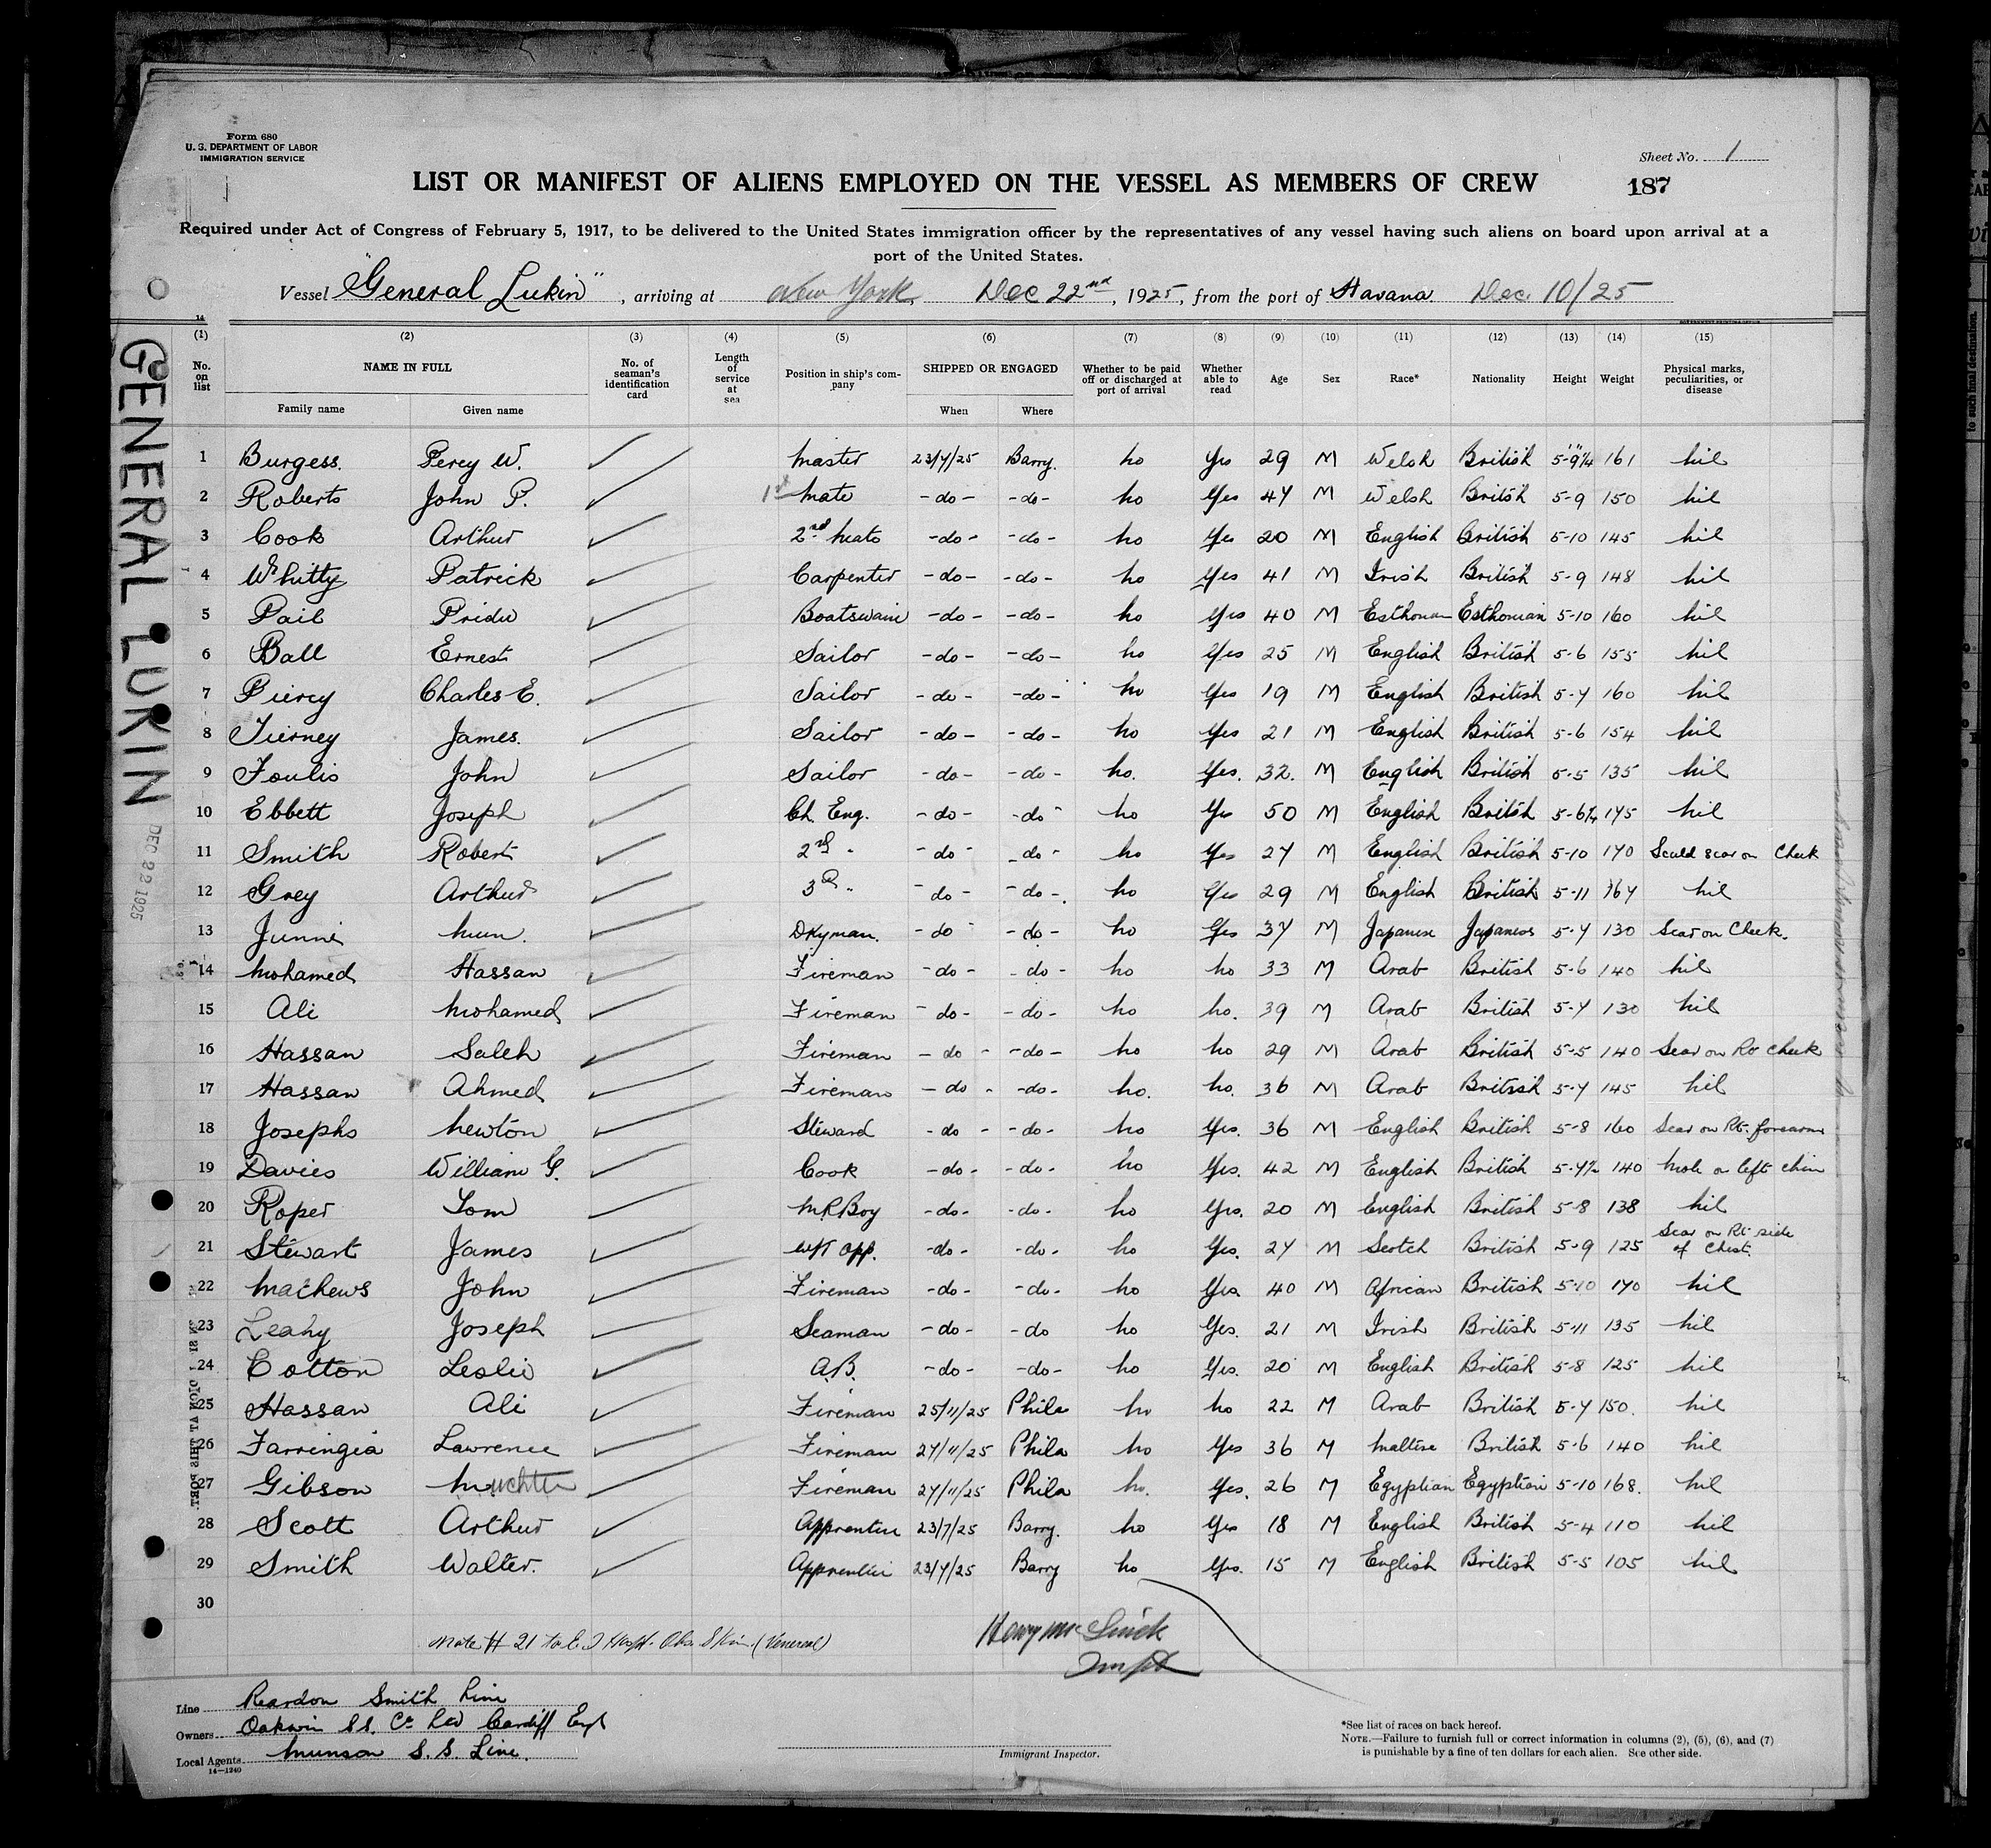 Form 680
U. S. DEPARTMENT OF LABOR
IMMIGRATION SERVICE
Sheet No. 1
LIST OR MANIFEST OF ALIENS EMPLOYED ON THE VESSEL AS MEMBERS OF CREW
187
Required under Act of Congress of February 5, 1917, to be delivered to the United States immigration officer by the representatives of any vessel having such aliens on board upon arrival at a
port of the United States.
Vessel "General Lukin", arriving at New York Dec 22nd, 1925, from the port of Havana Dec. 10/25
(1) (2) (3) (4) (5) (6) (7) (8) (9) (10) (11) (12) (13) (14) (15)
No. on list NAME IN FULL Family name Given name No. of seaman's identification card Length of service at sea Position in ship's company SHIPPED OR ENGAGED When Where Whether to be paid off or discharged at port of arrival Whether able to read Age Sex Race* Nationality Height Weight Physical marks, peculiarities, or disease
1 Burgess. Percy W. Master 23/7/25 Barry. No Yes 29 M Welsh British 5-9¼ 161 Nil
2 Roberts John P. 1st Mate -do- -do- No Yes 47 M Welsh British 5-9 150 Nil
3 Cook Arthur 2nd Mate -do- -do- No Yes 20 M English British 5-10 145 Nil
4 Whitty Patrick Carpenter -do- -do- No Yes 41 M Irish British 5-9 148 Nil
5 Pail Pridu Boatswain -do- -do- No Yes 40 M Esthonian Esthonian 5-10 160 Nil
6 Ball Ernest Sailor -do- -do- No Yes 25 M English British 5-6 155 Nil
7 Piercy Charles E. Sailor -do- -do- No Yes 19 M English British 5-7 160 Nil
8 Tierney James. Sailor -do- -do- No Yes 21 M English British 5-6 154 Nil
9 Foulis John Sailor -do- -do- No. Yes. 32. M English British 5-5 135 Nil
10 Ebbett Joseph Ch Eng. -do- -do- No Yes 50 M English British 5-6¼ 175 Nil
11 Smith Robert 2nd " -do- -do- No Yes 27 M English British 5-10 170 Scald scar on Cheek
12 Grey Arthur 3rd " -do- -do- No Yes 29 M English British 5-11 164 Nil
13 Junni Nun. Dkyman. -do- -do- No Yes 37 M Japanese Japanese 5-7 130 Scar on Cheek.
14 Mohamed Hassan Fireman -do- -do- No No 33 M Arab British 5-6 140 Nil
15 Ali Mohamed Fireman -do- -do- No No. 39 M Arab British 5-7 130 Nil
16 Hassan Saleh Fireman -do- -do- No No 29 M Arab British 5-5 140 Scar on Rt cheek
17 Hassan Ahmed Fireman -do- -do- No. No. 36 M Arab British 5-7 145 Nil
18 Josephs Newton Steward -do- -do- No Yes. 36 M English British 5-8 160 Scar on Rt. forearm
19 Davies William G. Cook -do- -do- No Yes. 42 M English British 5-7½ 140 Mole on left chin
20 Roper Tom M.R Boy -do- -do- No Yes. 20 M English British 5-8 138 Nil
21 Stewart James W/T Opp. -do- -do- No Yes. 27 M Scotch British 5-9 125 Scar on Rt side of Chest.
22 Mathews John Fireman -do- -do- No Yes. 40 M African British 5-10 170 Nil
23 Leahy Joseph Seaman -do- -do No Yes. 21 M Irish British 5-11 135 Nil
24 Cotton Leslie A.B. -do- -do- No Yes. 20 M English British 5-8 125 Nil
25 Hassan Ali Fireman 25/11/25 Phila No No 22 M Arab British 5-7 150. Nil
26 Farringia Lawrence Fireman 27/11/25 Phila No Yes 36 M Maltese British 5-6 140 Nil
27 Gibson Fireman 27/11/25 Phila No. Yes. 26 M Egyptian Egyptian 5-10 168. Nil
28 Scott Arthur Apprentice 23/7/25 Barry. No Yes 18 M English British 5-4 110 Nil
29 Smith Walter. Apprentice 23/7/25 Barry No Yes. 15 M English British 5-5 105 Nil
30
Note # 21 Hosp. Obs. Skin. (Venereal)
Line Reardon Smith Line
Owners Oakwin S.S. Co Ltd Cardiff Engl
Local Agents Munson S.S. Line.
14—1240
Immigrant Inspector.
*See list of races on back hereof.
NOTE.—Failure to furnish full or correct information in columns (2), (5), (6), and (7)
is punishable by a fine of ten dollars for each alien. See other side.
GENERAL LUKIN
DEC 22 1925